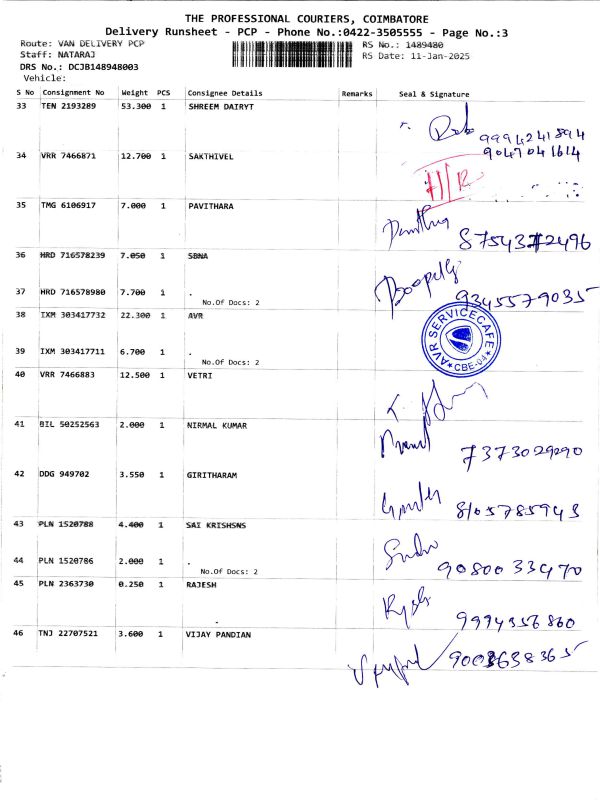 THE PROFESSIONAL COURIERS, COIMBATORE
Delivery Runsheet - PCP - Phone No.:0422-3505555 - Page No.:3
Route: VAN DELIVERY PCP RS No.: 1489480
Staff: NATARAJ RS Date: 11-Jan-2025
DRS No.: DCJB148948003
Vehicle:
S No Consignment No Weight PCS Consignee Details Remarks Seal & Signature
33 TEN 2193289 53.300 1 SHREEM DAIRYT
9994241894
34 VRR 7466871 12.700 1 SAKTHIVEL 9047041614
35 TMG 6106917 7.000 1 PAVITHARA
8754372496
36 HRD 716578239 7.050 1 SBNA
37 HRD 716578980 7.700 1 . 9345579035
No.Of Docs: 2
38 IXM 303417732 22.300 1 AVR
AVR SERVICE CAFE
★ CBE-04 ★
39 IXM 303417711 6.700 1 .
No.Of Docs: 2
40 VRR 7466883 12.500 1 VETRI
41 BIL 50252563 2.000 1 NIRMAL KUMAR
7373029290
42 DDG 949702 3.550 1 GIRITHARAM
8105785943
43 PLN 1520788 4.400 1 SAI KRISHSNS
44 PLN 1520786 2.000 1 . 9080033470
No.Of Docs: 2
45 PLN 2363730 0.250 1 RAJESH
. 9994356860
46 TNJ 22707521 3.600 1 VIJAY PANDIAN
9003638365